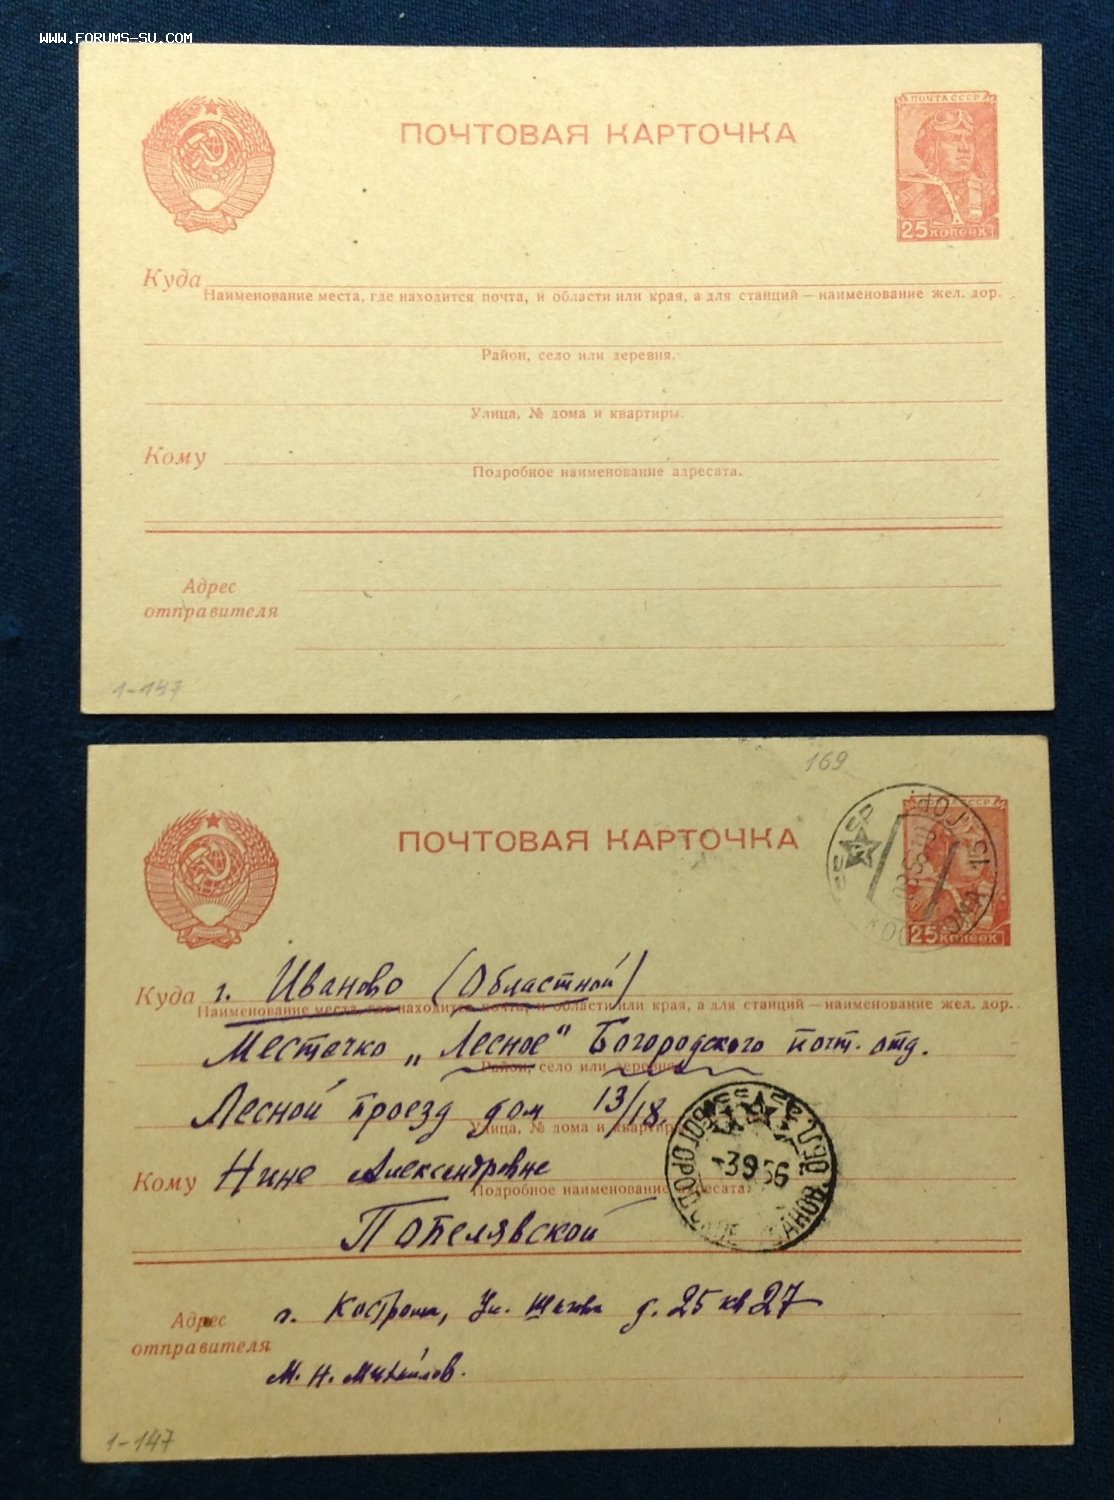 WWW.FORUMS-SU.COM
ПОЧТОВАЯ КАРТОЧКА
ПОЧТА СССР
25 КОПЕЕК
Куда
Наименование места, где находится почта, и области или края, а для станций — наименование жел. дор.
Район, село или деревня.
Улица, № дома и квартиры.
Кому
Подробное наименование адресата.
Адрес
отправителя
1-147
169
ПОЧТОВАЯ КАРТОЧКА
25 КОПЕЕК
Куда г. Иваново (Областной)
Наименование места, где находится почта, и области или края, а для станций — наименование жел. дор.
Местечко „Лесное" Богородского почт. отд.
Район, село или деревня.
Лесной проезд дом 13/18.
Улица, № дома и квартиры
Кому Нине Александровне
Подробное наименование адресата.
3 9 56
Попелявской
Адрес
отправителя
г. Кострома, Ул. д. 25 кв 27
М. Н. Михайлов.
1-147